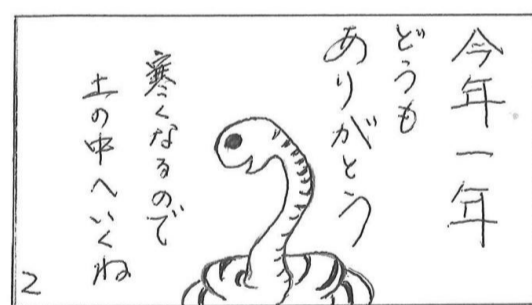 今年一年
どうも
ありがとう
寒くなるので
土の中へいくね
2